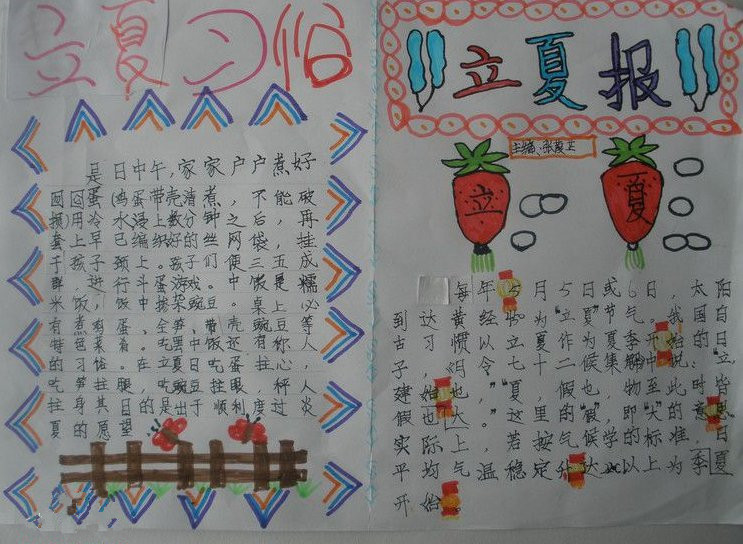 立夏习俗
是日中午,家家户户煮好
囫囵蛋(鸡蛋带壳清煮,不能破
损)用冷水浸上数分钟之后,再
套上早已编织好的丝网袋,挂
于孩子颈上。孩子们便三五成
群,进行斗蛋游戏。中饭是糯
米饭,饭中掺杂豌豆。桌上必
有煮鸡蛋、全笋、带壳豌豆等
特色菜肴。吃罢中饭还有称人
的习俗。在立夏日吃蛋拄心,
吃笋拄腿,吃豌豆拄眼,秤人
拄身其目的是出于顺利度过炎
夏的愿望
立夏报
主编:张
立 夏
每年5月5日或6日,太阳
到达黄经 为“立夏”节气。我国自
古习惯以立夏作为夏季开始的日
子,《月令七十二候集解》中说:“立,
建始也,”“夏,假也,物至此时皆
假大也。”这里的“假”,即“大”的意思。
实际上,若按气候学的标准,日
平均气温稳定升达 以上为夏季
开始。